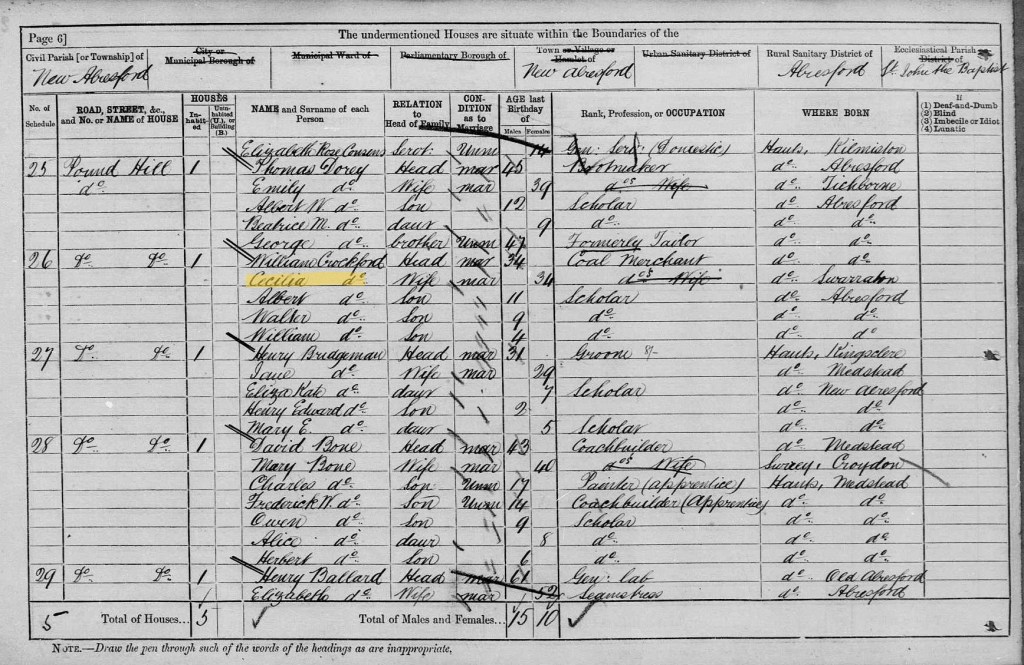 Page 6] The undermentioned Houses are situate within the Boundaries of the
Civil Parish [or Township] of City or Municipal Borough of Municipal Ward of Parliamentary Borough of Town or Village or Hamlet of Urban Sanitary District of Rural Sanitary District of Ecclesiastical Parish or District of
New Alresford New Alresford Alresford St. John the Baptist
No. of Schedule ROAD, STREET, &c., and No. or NAME of HOUSE HOUSES Inhabited Uninhabited (U.), or Building (B.) NAME and Surname of each Person RELATION to Head of Family CONDITION as to Marriage AGE last Birthday of Males Females Rank, Profession, or OCCUPATION WHERE BORN If (1) Deaf-and-Dumb (2) Blind (3) Imbecile or Idiot (4) Lunatic
Elizabeth Rose Cousens Servt. Unm 14 Gen: Serv: (Domestic) Hants, Kilmiston
25 Pound Hill 1 Thomas Dorey Head mar 45 Bootmaker do Alresford
do Emily do Wife mar 39 dos Wife do Tichborne
Albert W. do Son 12 Scholar do Alresford
Beatrice M. do daur 9 do do do
George do brother Unm 47 Formerly Tailor do do
26 do do 1 William Crockford Head mar 34 Coal Merchant do do
Cecilia do Wife mar 34 dos Wife do Swarraton
Albert do Son 11 Scholar do Alresford
Walter do Son 9 do do do
William do Son 4 do do do
27 do do 1 Henry Bridgeman Head mar 31 Groom Hants, Kingsclere
Jane do Wife mar 29 do Medstead
Eliza Kate do daur 7 Scholar do New Alresford
Henry Edward do Son 2 do do
Mary E. do daur 5 Scholar do do
28 do do 1 David Bone Head mar 43 Coachbuilder do Medstead
Mary Bone Wife mar 40 dos Wife Surrey, Croydon
Charles do Son Unm 17 Painter (apprentice) Hants, Medstead
Frederick W. do Son Unm 14 Coachbuilder (Apprentice) do do
Owen do Son 9 Scholar do do
Alice do daur 8 do do do
Herbert do Son 6 do do do
29 do do 1 Henry Ballard Head mar 61 Gen: lab do Old Alresford
Elizabeth do Wife mar 52 Seamstress do Alresford
5 Total of Houses... 5 Total of Males and Females... 15 10
NOTE.—Draw the pen through such of the words of the headings as are inappropriate.